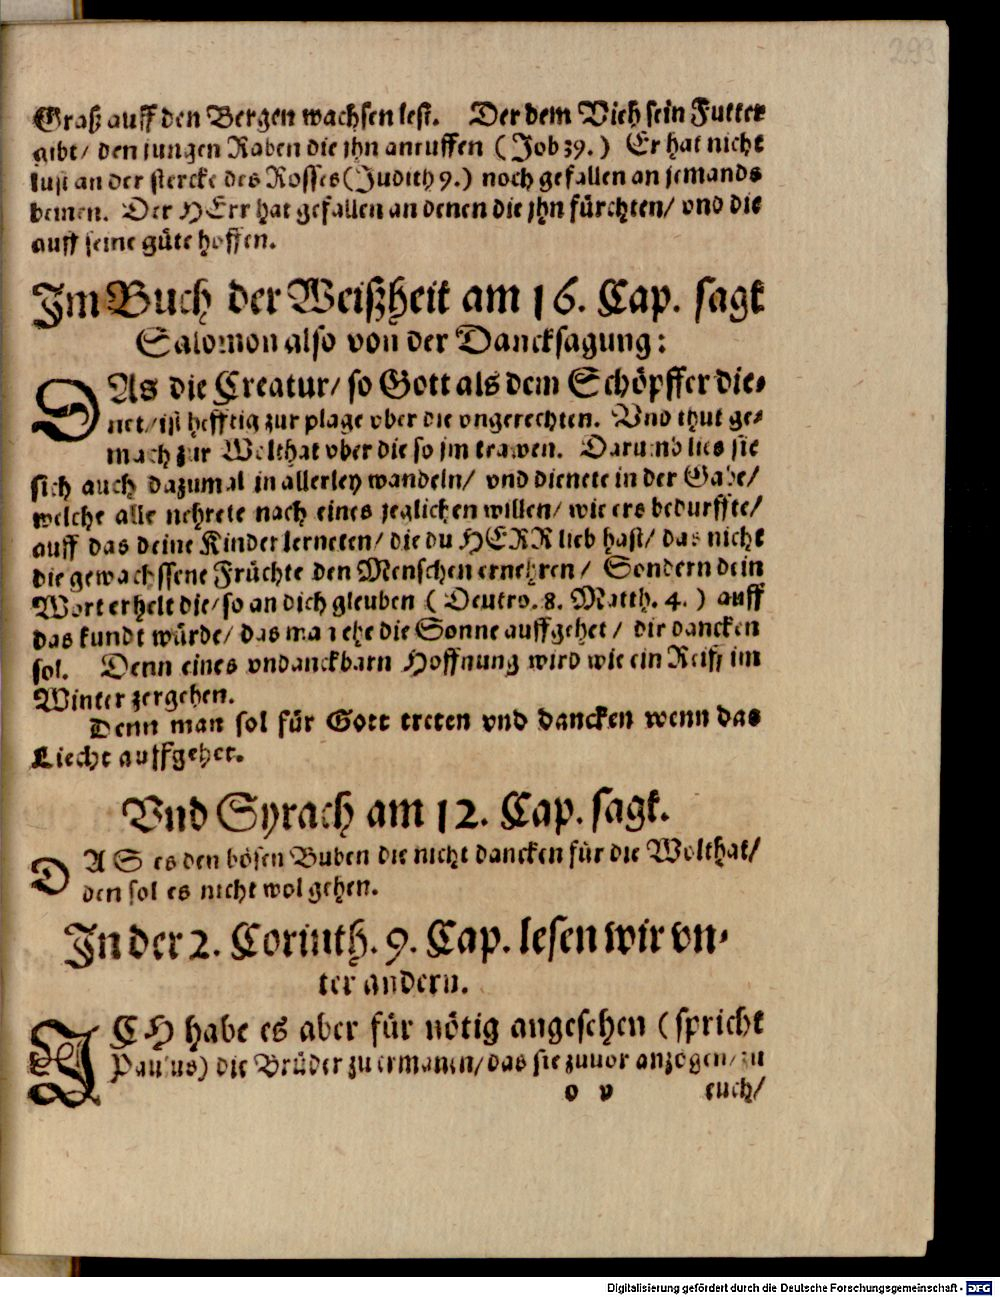 293
Graß auff den Bergen wachsen lest. Der dem Vieh sein Futter
gibt/ den jungen Raben die jhn anruffen (Job 39.) Er hat nicht
lust an der stercke des Rosses (Judith 9.) noch gefallen an jemands
beinen. Der HErr hat gefallen an denen die jhn fürchten/ vnd die
auff seine güte hoffen.
Im Buch der Weißheit am 16. Cap. sagt
Salomon also von der Dancksagung:
DAs die Creatur/ so Gott als dem Schöpffer die-
net/ ist hefftig zur plage vber die vngerechten. Vnd thut ge-
mach zur Wolthat vber die so jm trawen. Darumb lies sie
sich auch dazumal in allerley wandeln/ vnd dienete in der Gabe/
welche alle nehrete nach eines jeglichen willen/ wie ers bedurffte/
auff das deine Kinder lerneten/ die du HERR lieb hast/ das nicht
die gewachssene Früchte den Menschen ernehren/ Sondern dein
Wort erhelt die/ so an dich gleuben (Deutro. 8. Matth. 4.) auff
das kundt würde/ das man ehe die Sonne auffgehet/ dir dancken
sol. Denn eines vndanckbarn Hoffnung wird wie ein Reiff im
Winter zergehen.
Denn man sol für Gott treten vnd dancken wenn das
Liecht auffgehet.
Vnd Syrach am 12. Cap. sagt.
DAS es den bösen Buben die nicht dancken für die Wolthat/
den sol es nicht wol gehen.
In der 2. Corinth. 9. Cap. lesen wir vn-
ter andern.
ICH habe es aber für nötig angesehen (spricht
Paulus) die Brüder zu ermanen/ das sie zuuor anzögen/ zu
o v euch/
Digitalisierung gefördert durch die Deutsche Forschungsgemeinschaft - DFG